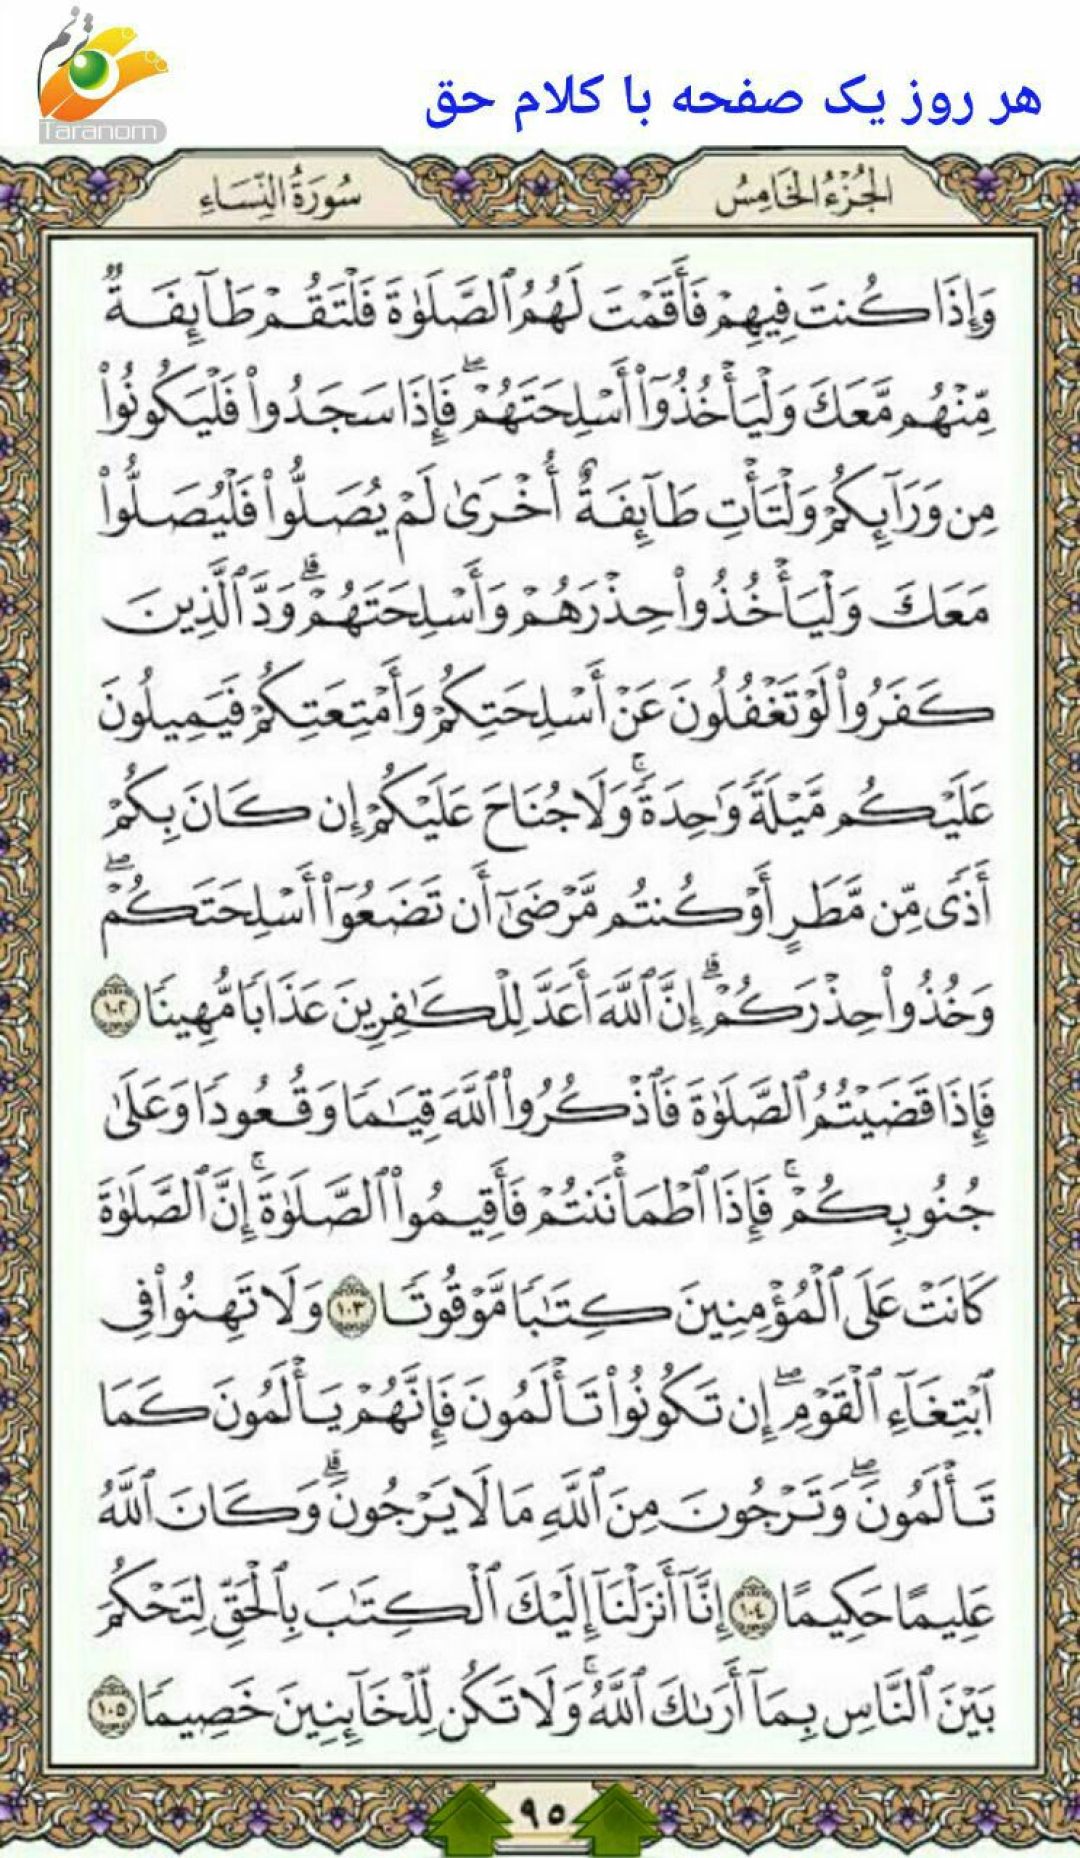 ترنم
Taranom
هر روز یک صفحه با کلام حق
الجُزْءُ الخَامِسُ
سُورَةُ النِّسَاءِ
وَإِذَا كُنتَ فِيهِمْ فَأَقَمْتَ لَهُمُ ٱلصَّلَوٰةَ فَلْتَقُمْ طَآئِفَةٌ
مِّنْهُم مَّعَكَ وَلْيَأْخُذُوٓا۟ أَسْلِحَتَهُمْ ۖ فَإِذَا سَجَدُوا۟ فَلْيَكُونُوا۟
مِن وَرَآئِكُمْ وَلْتَأْتِ طَآئِفَةٌ أُخْرَىٰ لَمْ يُصَلُّوا۟ فَلْيُصَلُّوا۟
مَعَكَ وَلْيَأْخُذُوا۟ حِذْرَهُمْ وَأَسْلِحَتَهُمْ ۗ وَدَّ ٱلَّذِينَ
كَفَرُوا۟ لَوْ تَغْفُلُونَ عَنْ أَسْلِحَتِكُمْ وَأَمْتِعَتِكُمْ فَيَمِيلُونَ
عَلَيْكُم مَّيْلَةً وَٰحِدَةً ۚ وَلَا جُنَاحَ عَلَيْكُمْ إِن كَانَ بِكُمْ
أَذًى مِّن مَّطَرٍ أَوْ كُنتُم مَّرْضَىٰٓ أَن تَضَعُوٓا۟ أَسْلِحَتَكُمْ ۖ
وَخُذُوا۟ حِذْرَكُمْ ۗ إِنَّ ٱللَّهَ أَعَدَّ لِلْكَٰفِرِينَ عَذَابًا مُّهِينًا ١٠٢
فَإِذَا قَضَيْتُمُ ٱلصَّلَوٰةَ فَٱذْكُرُوا۟ ٱللَّهَ قِيَٰمًا وَقُعُودًا وَعَلَىٰ
جُنُوبِكُمْ ۚ فَإِذَا ٱطْمَأْنَنتُمْ فَأَقِيمُوا۟ ٱلصَّلَوٰةَ ۚ إِنَّ ٱلصَّلَوٰةَ
كَانَتْ عَلَى ٱلْمُؤْمِنِينَ كِتَٰبًا مَّوْقُوتًا ١٠٣ وَلَا تَهِنُوا۟ فِى
ٱبْتِغَآءِ ٱلْقَوْمِ ۖ إِن تَكُونُوا۟ تَأْلَمُونَ فَإِنَّهُمْ يَأْلَمُونَ كَمَا
تَأْلَمُونَ ۖ وَتَرْجُونَ مِنَ ٱللَّهِ مَا لَا يَرْجُونَ ۗ وَكَانَ ٱللَّهُ
عَلِيمًا حَكِيمًا ١٠٤ إِنَّآ أَنزَلْنَآ إِلَيْكَ ٱلْكِتَٰبَ بِٱلْحَقِّ لِتَحْكُمَ
بَيْنَ ٱلنَّاسِ بِمَآ أَرَىٰكَ ٱللَّهُ ۚ وَلَا تَكُن لِّلْخَآئِنِينَ خَصِيمًا ١٠٥
٩٥